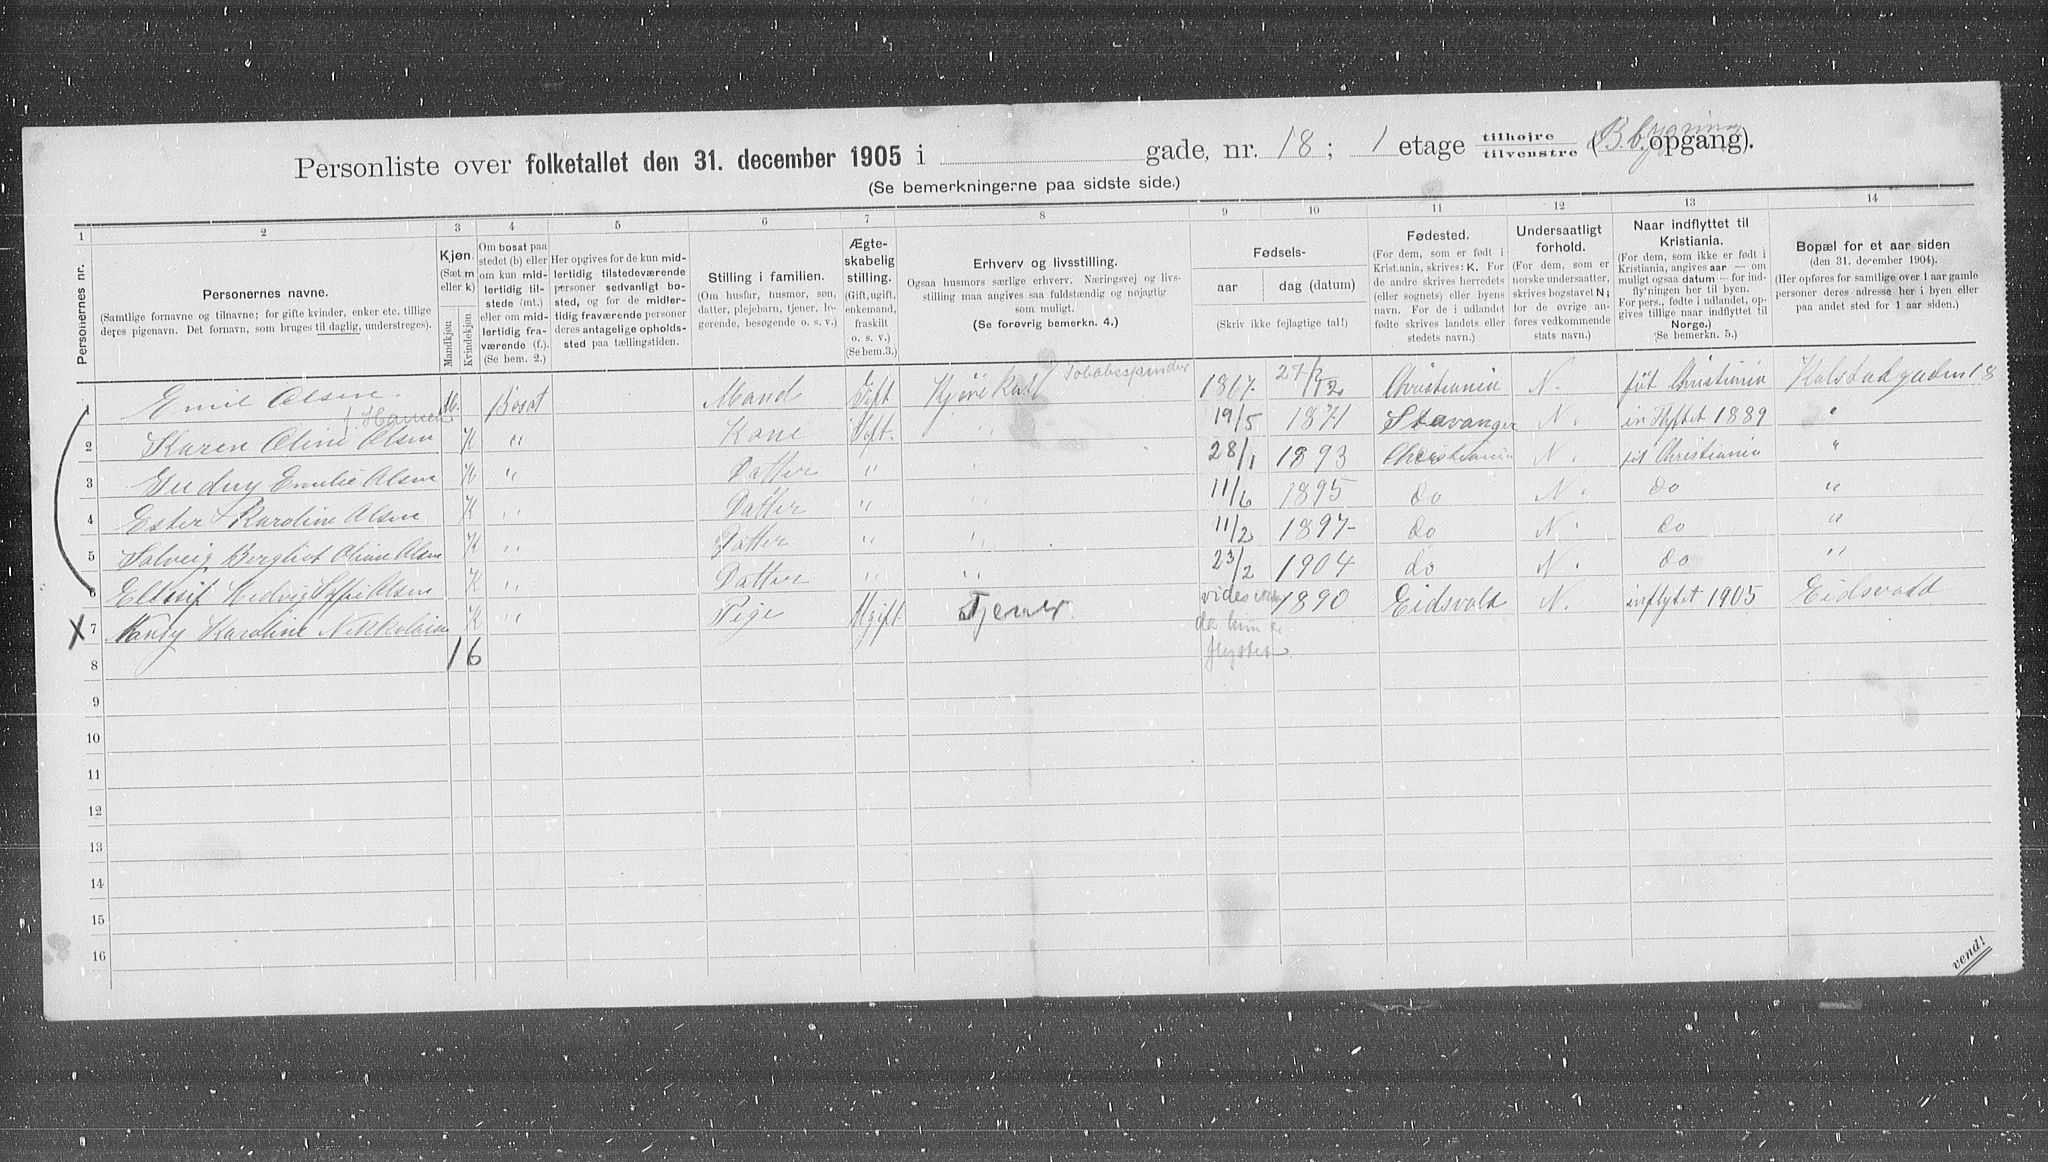 Personliste over folketallet den 31. december 1905 i gade, nr. 18; 1 etage tilhøjre / tilvenstre (B. bygning opgang).
(Se bemerkningerne paa sidste side.)
1 2 3 4 5 6 7 8 9 10 11 12 13 14
Personernes nr.
Personernes navne.
(Samtlige fornavne og tilnavne; for gifte kvinder, enker etc. tillige deres pigenavn. Det fornavn, som bruges til daglig, understreges).
Kjøn.
(Sæt m eller k)
Mandkjøn
Kvindekjøn
Om bosat paa stedet (b) eller om kun midlertidig tilstede (mt.) eller om midlertidig fraværende (f.)
(Se bem. 2.)
Her opgives for de kun midlertidig tilstedeværende personer sedvanligt bosted, og for de midlertidig fraværende personer deres antagelige opholdssted paa tællingstiden.
Stilling i familien.
(Om husfar, husmor, søn, datter, plejebarn, tjener, logerende, besøgende o. s. v.)
Ægteskabelig stilling.
(Gift, ugift, enkemand, fraskilt o. s. v.)
(Se bem.3.)
Erhverv og livsstilling.
Ogsaa husmors særlige erhverv. Næringsvej og livsstilling maa angives saa fuldstændig og nøjagtig som muligt.
(Se forøvrig bemerkn. 4.)
Fødsels-
aar dag (datum)
(Skriv ikke fejlagtige tal!)
Fødested.
(For dem, som er født i Kristiania, skrives: K. For de andre skrives herredets (eller sognets) eller byens navn. For de i udlandet fødte skrives landets eller stedets navn.)
Undersaatligt forhold.
(For dem, som er norske undersaatter, skrives bogstavet N; for de øvrige anføres vedkommende stats navn.)
Naar indflyttet til Kristiania.
(For dem, som ikke er født i Kristiania, angives aar — om muligt ogsaa datum — for indflytningen her til byen. For pers., fødte i udlandet, opgives tillige naar indflyttet til Norge.)
(Se bemerkn. 5.)
Bopæl for et aar siden
(den 31. december 1904).
(Her opføres for samtlige over 1 aar gamle personer deres adresse her i byen eller paa andet sted for 1 aar siden.)
1 Emil Olsen. M. Bosat Mand Gift Tobaksspinder 1867 27/12 Christiania N. føt Christiania 18
f. Hansen
2 Karen Oline Olsen K " Kone Gift. " 19/5 1871 Stavanger N. inflyttet 1889 "
3 Gudny Emilie Olsen K " Datter " " 28/1 1893 Christiania N. føt Christiania "
4 Ester Karoline Olsen K " Datter " " 11/6 1895 do N. do "
5 Solveig Bergliot Oline Olsen K " Datter " " 11/2 1897 do N. do "
6 Ellesif Hedvig Olsen K " Datter " " 23/2 1904 do N. do "
X 7 Nansy Karoline K " Pige Ugift Tjener. vides ikke da hun er flyttet 1890 Eidsvold N. inflytet 1905 Eidsvold
8 1 6
9
10
11
12
13
14
15
16
vend!